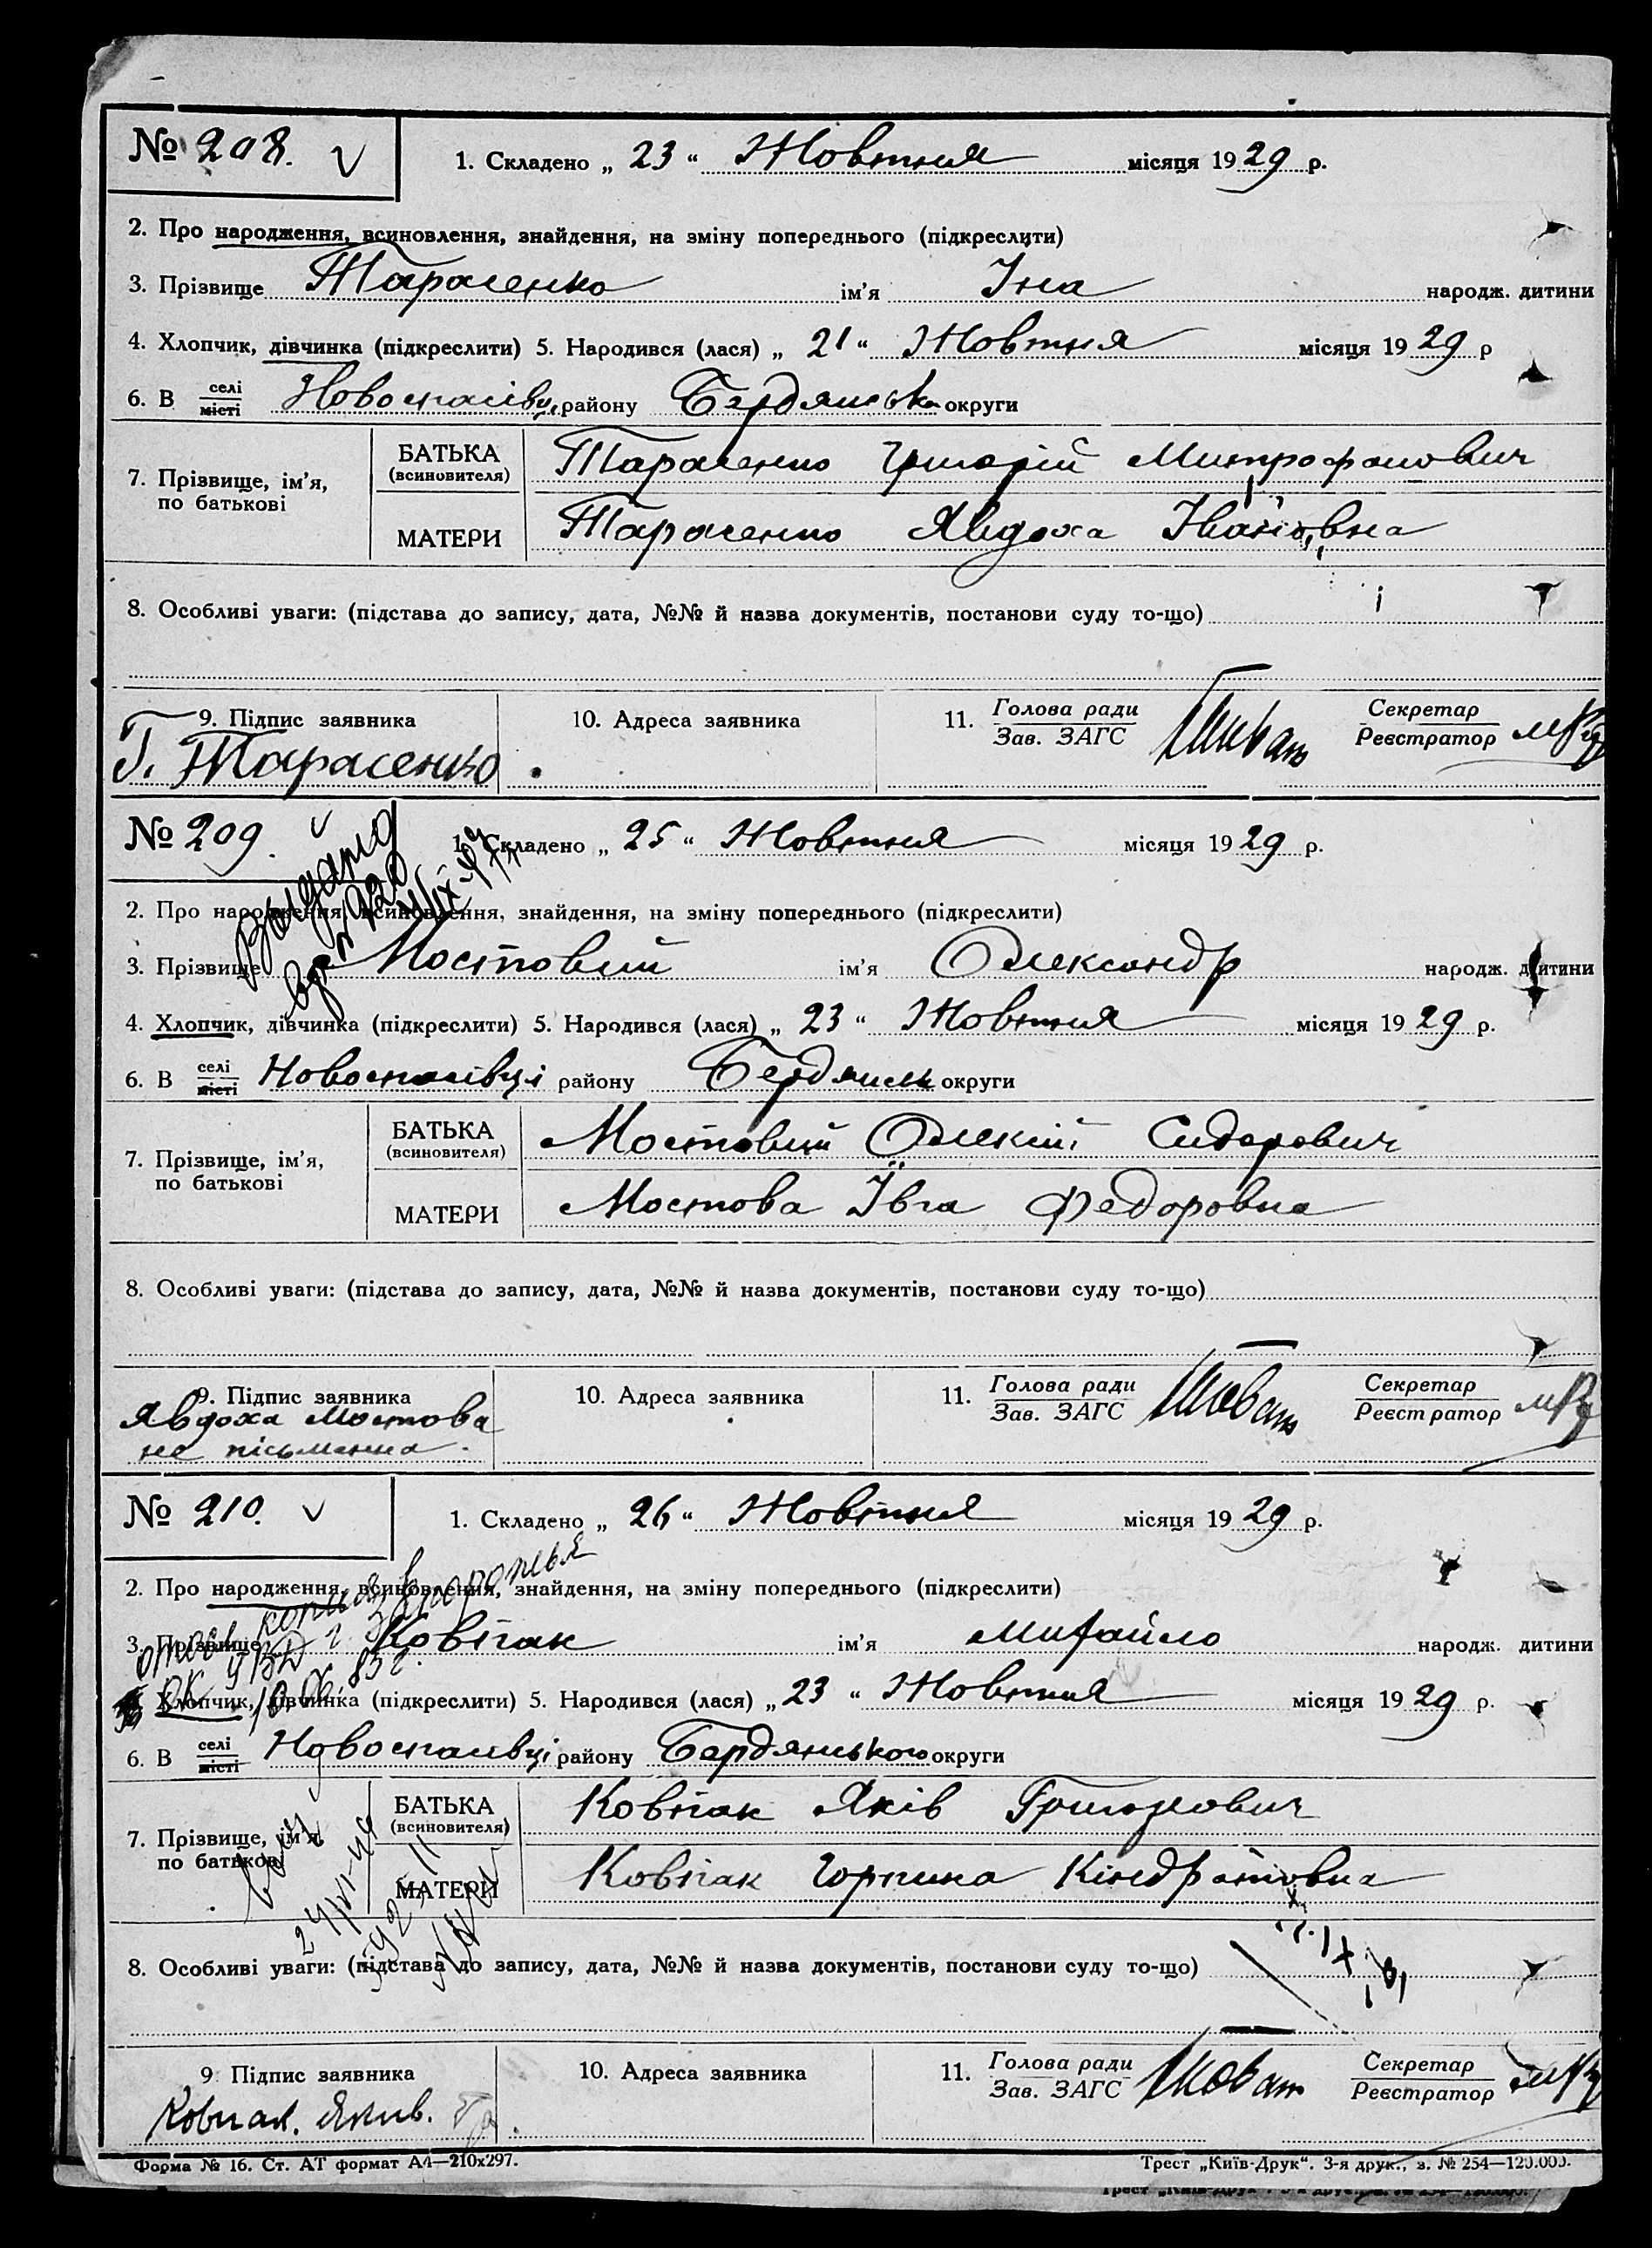 № 208. V 1. Складено „ 23 “ Жовтня місяця 1929 р.
2. Про народження, всиновлення, знайдення, на зміну попереднього (підкреслити)
3. Прізвище Тарасенко ім'я Іна народж. дитини
4. Хлопчик, дівчинка (підкреслити) 5. Народився (лася) „ 21 “ Жовтня місяця 1929 р
6. В селі місті Новоспасівці району Бердянська округи
7. Прізвище, ім'я, по батькові
БАТЬКА (всиновителя) Тарасенко Григорій Митрофанович
МАТЕРИ Тарасенко Явдоха Іванівна
8. Особливі уваги: (підстава до запису, дата, №№ й назва документів, постанови суду то-що)
9. Підпис заявника 10. Адреса заявника 11. Голова ради Зав. ЗАГС Секретар Реєстратор
Г. Тарасенко
№ 209. V 1. Складено „ 25 “ Жовтня місяця 1929 р.
2. Про народження, всиновлення, знайдення, на зміну попереднього (підкреслити)
3. Прізвище Мостовий ім'я Олександр народж. дитини
4. Хлопчик, дівчинка (підкреслити) 5. Народився (лася) „ 23 “ Жовтня місяця 1929 р.
6. В селі місті Новоспасівці району Бердянськ округи
7. Прізвище, ім'я, по батькові
БАТЬКА (всиновителя) Мостовий Олексій Сидорович
МАТЕРИ Мостова Ївга Федоровна
8. Особливі уваги: (підстава до запису, дата, №№ й назва документів, постанови суду то-що)
9. Підпис заявника 10. Адреса заявника 11. Голова ради Зав. ЗАГС Секретар Реєстратор
Явдоха Мостова
не пісьменна.
№ 210. V 1. Складено „ 26 “ Жовтня місяця 1929 р.
2. Про народження, всиновлення, знайдення, на зміну попереднього (підкреслити)
3. Прізвище Ковпак ім'я Михайло народж. дитини
4. Хлопчик, дівчинка (підкреслити) 5. Народився (лася) „ 23 “ Жовтня місяця 1929 р.
6. В селі місті Новоспасівці району Бердянського округи
7. Прізвище, ім'я, по батькові
БАТЬКА (всиновителя) Ковпак Яків Григорович
МАТЕРИ Ковпак Горпина Кіндратовна
8. Особливі уваги: (підстава до запису, дата, №№ й назва документів, постанови суду то-що)
9. Підпис заявника 10. Адреса заявника 11. Голова ради Зав. ЗАГС Секретар Реєстратор
Ковпак. Якив.
Форма № 16. Ст. АТ формат А4—210x297. Трест „Київ-Друк“. 3-я друк., з. № 254—120.000.